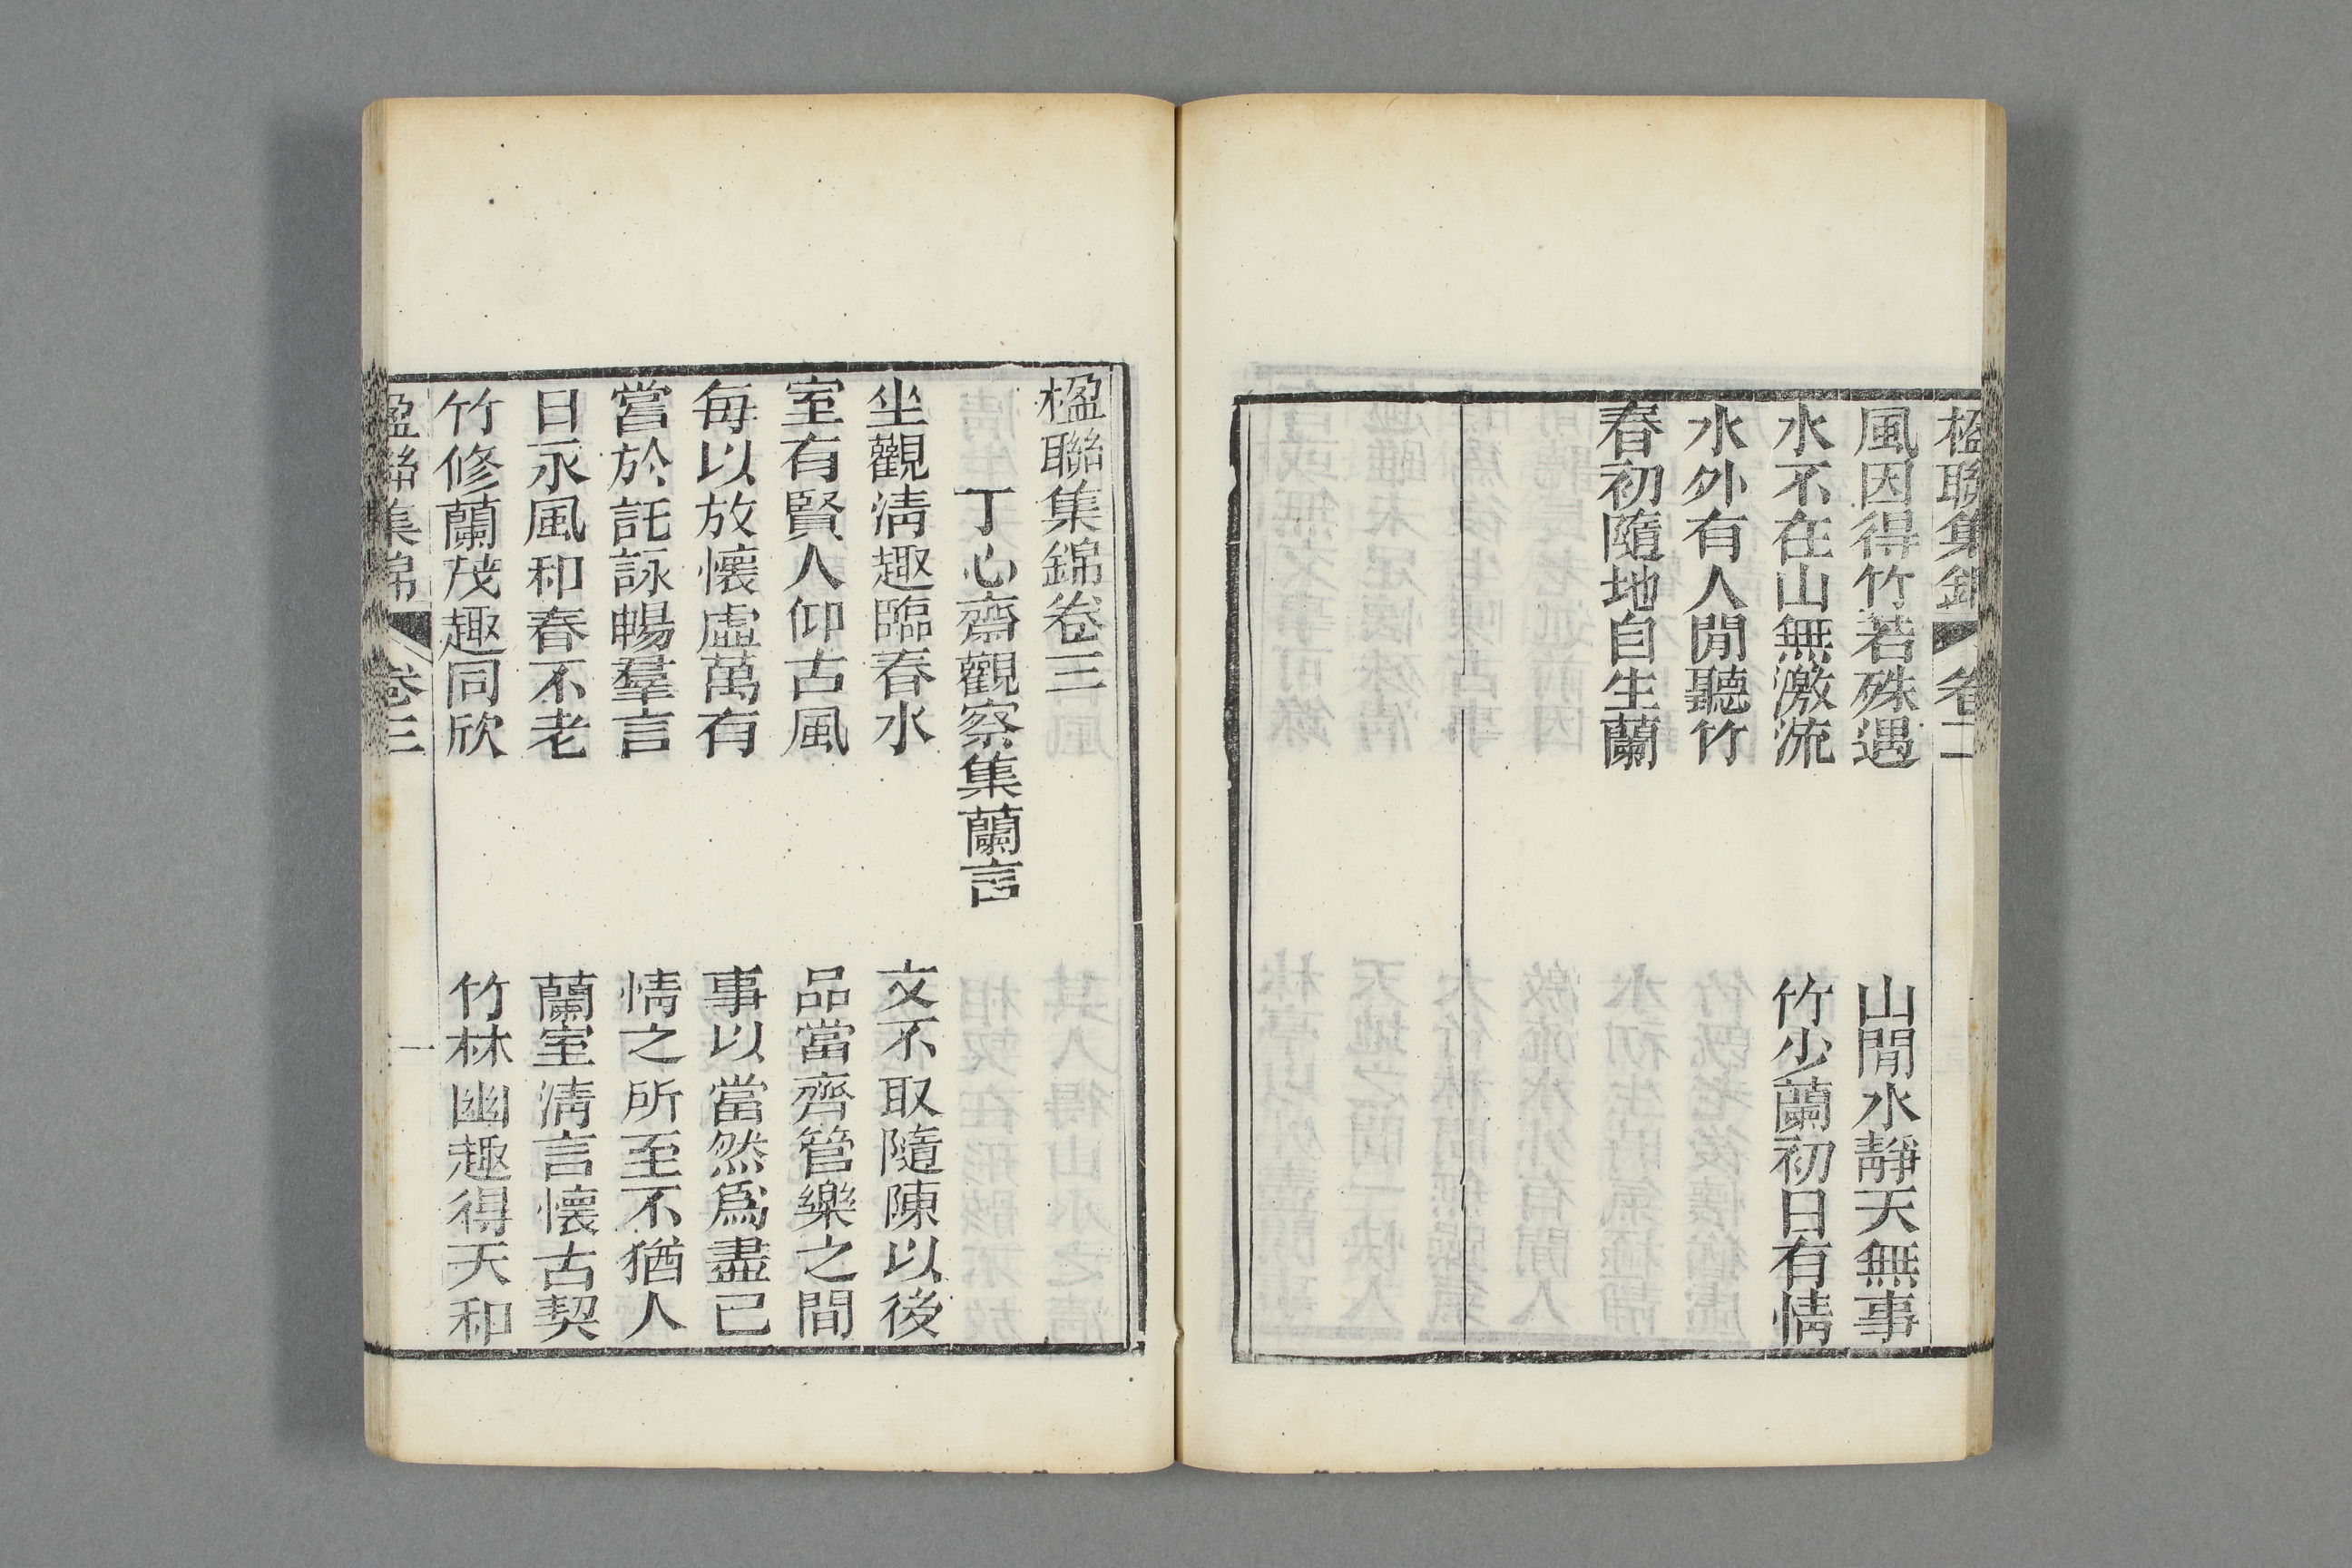 楹聯集錦 卷二
風因得竹若殊遇 山閒水靜天無事
水不在山無激流 竹少蘭初日有情
水外有人閒聽竹
春初隨地自生蘭
楹聯集錦卷三
丁心齋觀察集蘭言
坐觀淸趣臨春水 文不取隨陳以後
室有賢人仰古風 品當齊管樂之間
每以放懷虛萬有 事以當然爲盡己
嘗於託詠暢羣言 情之所至不猶人
日永風和春不老 蘭室淸言懷古契
竹修蘭茂趣同欣 竹林幽趣得天和
楹聯集錦 卷三 一